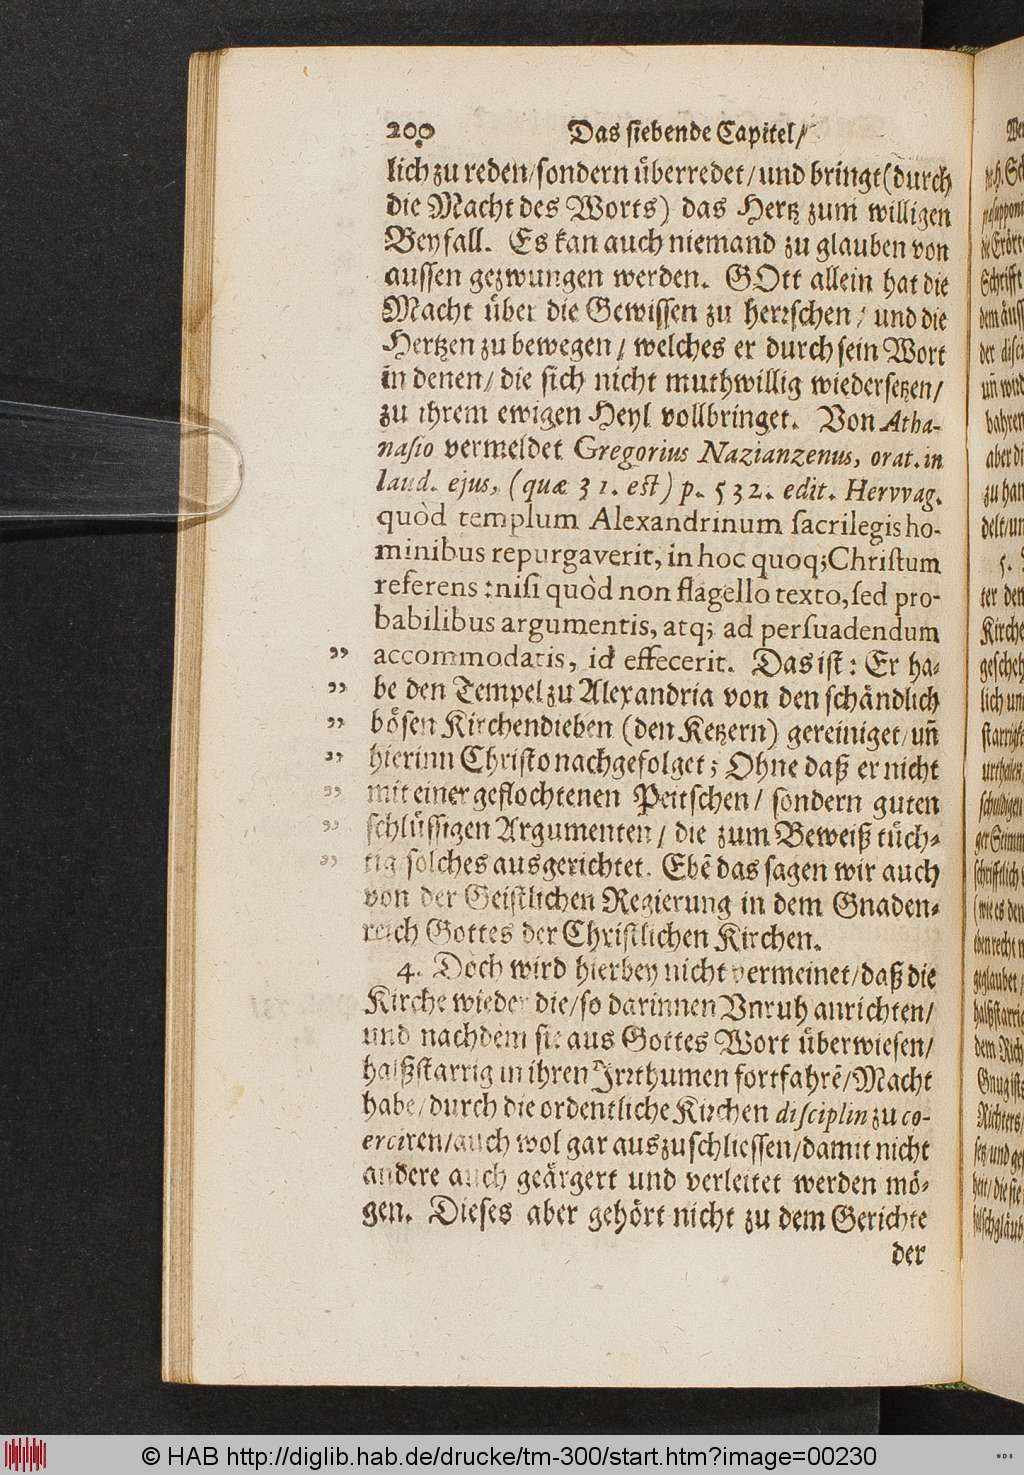 200 Das siebende Capitel/
lich zu reden/sondern uͤberredet/und bringt (durch
die Macht des Worts) das Hertz zum willigen
Beyfall. Es kan auch niemand zu glauben von
aussen gezwungen werden. GOtt allein hat die
Macht uͤber die Gewissen zu herrschen/ und die
Hertzen zu bewegen/ welches er durch sein Wort
in denen/ die sich nicht muthwillig wiedersetzen/
zu ihrem ewigen Heyl vollbringet. Von Atha-
nasio vermeldet Gregorius Nazianzenus, orat. in
laud. ejus, (quæ 31. est) p. 532. edit. Hervvag.
quòd templum Alexandrinum sacrilegis ho-
minibus repurgaverit, in hoc quoq; Christum
referens: nisi quòd non flagello texto, sed pro-
babilibus argumentis, atq; ad persuadendum
„ accommodatis, id effecerit. Das ist: Er ha-
„ be den Tempel zu Alexandria von den schändlich
„ boͤsen Kirchendieben (den Ketzern) gereiniget/ uñ
„ hierinn Christo nachgefolget; Ohne daß er nicht
„ mit einer geflochtenen Peitschen/ sondern guten
„ schluͤssigen Argumenten/ die zum Beweiß tuͤch-
„ tig solches ausgerichtet. Ebẽ das sagen wir auch
von der Geistlichen Regierung in dem Gnaden-
reich Gottes der Christlichen Kirchen.
4. Doch wird hierbey nicht vermeinet/daß die
Kirche wieder die/so darinnen Vnruh anrichten/
und nachdem sie aus Gottes Wort uͤberwiesen/
halßstarrig in ihren Jrrthumen fortfahrẽ/Macht
habe/durch die ordentliche Kirchen disciplin zu co-
erciren/auch wol gar auszuschliessen/damit nicht
andere auch geärgert und verleitet werden moͤ-
gen. Dieses aber gehoͤrt nicht zu dem Gerichte
der
© HAB http://diglib.hab.de/drucke/tm-300/start.htm?image=00230